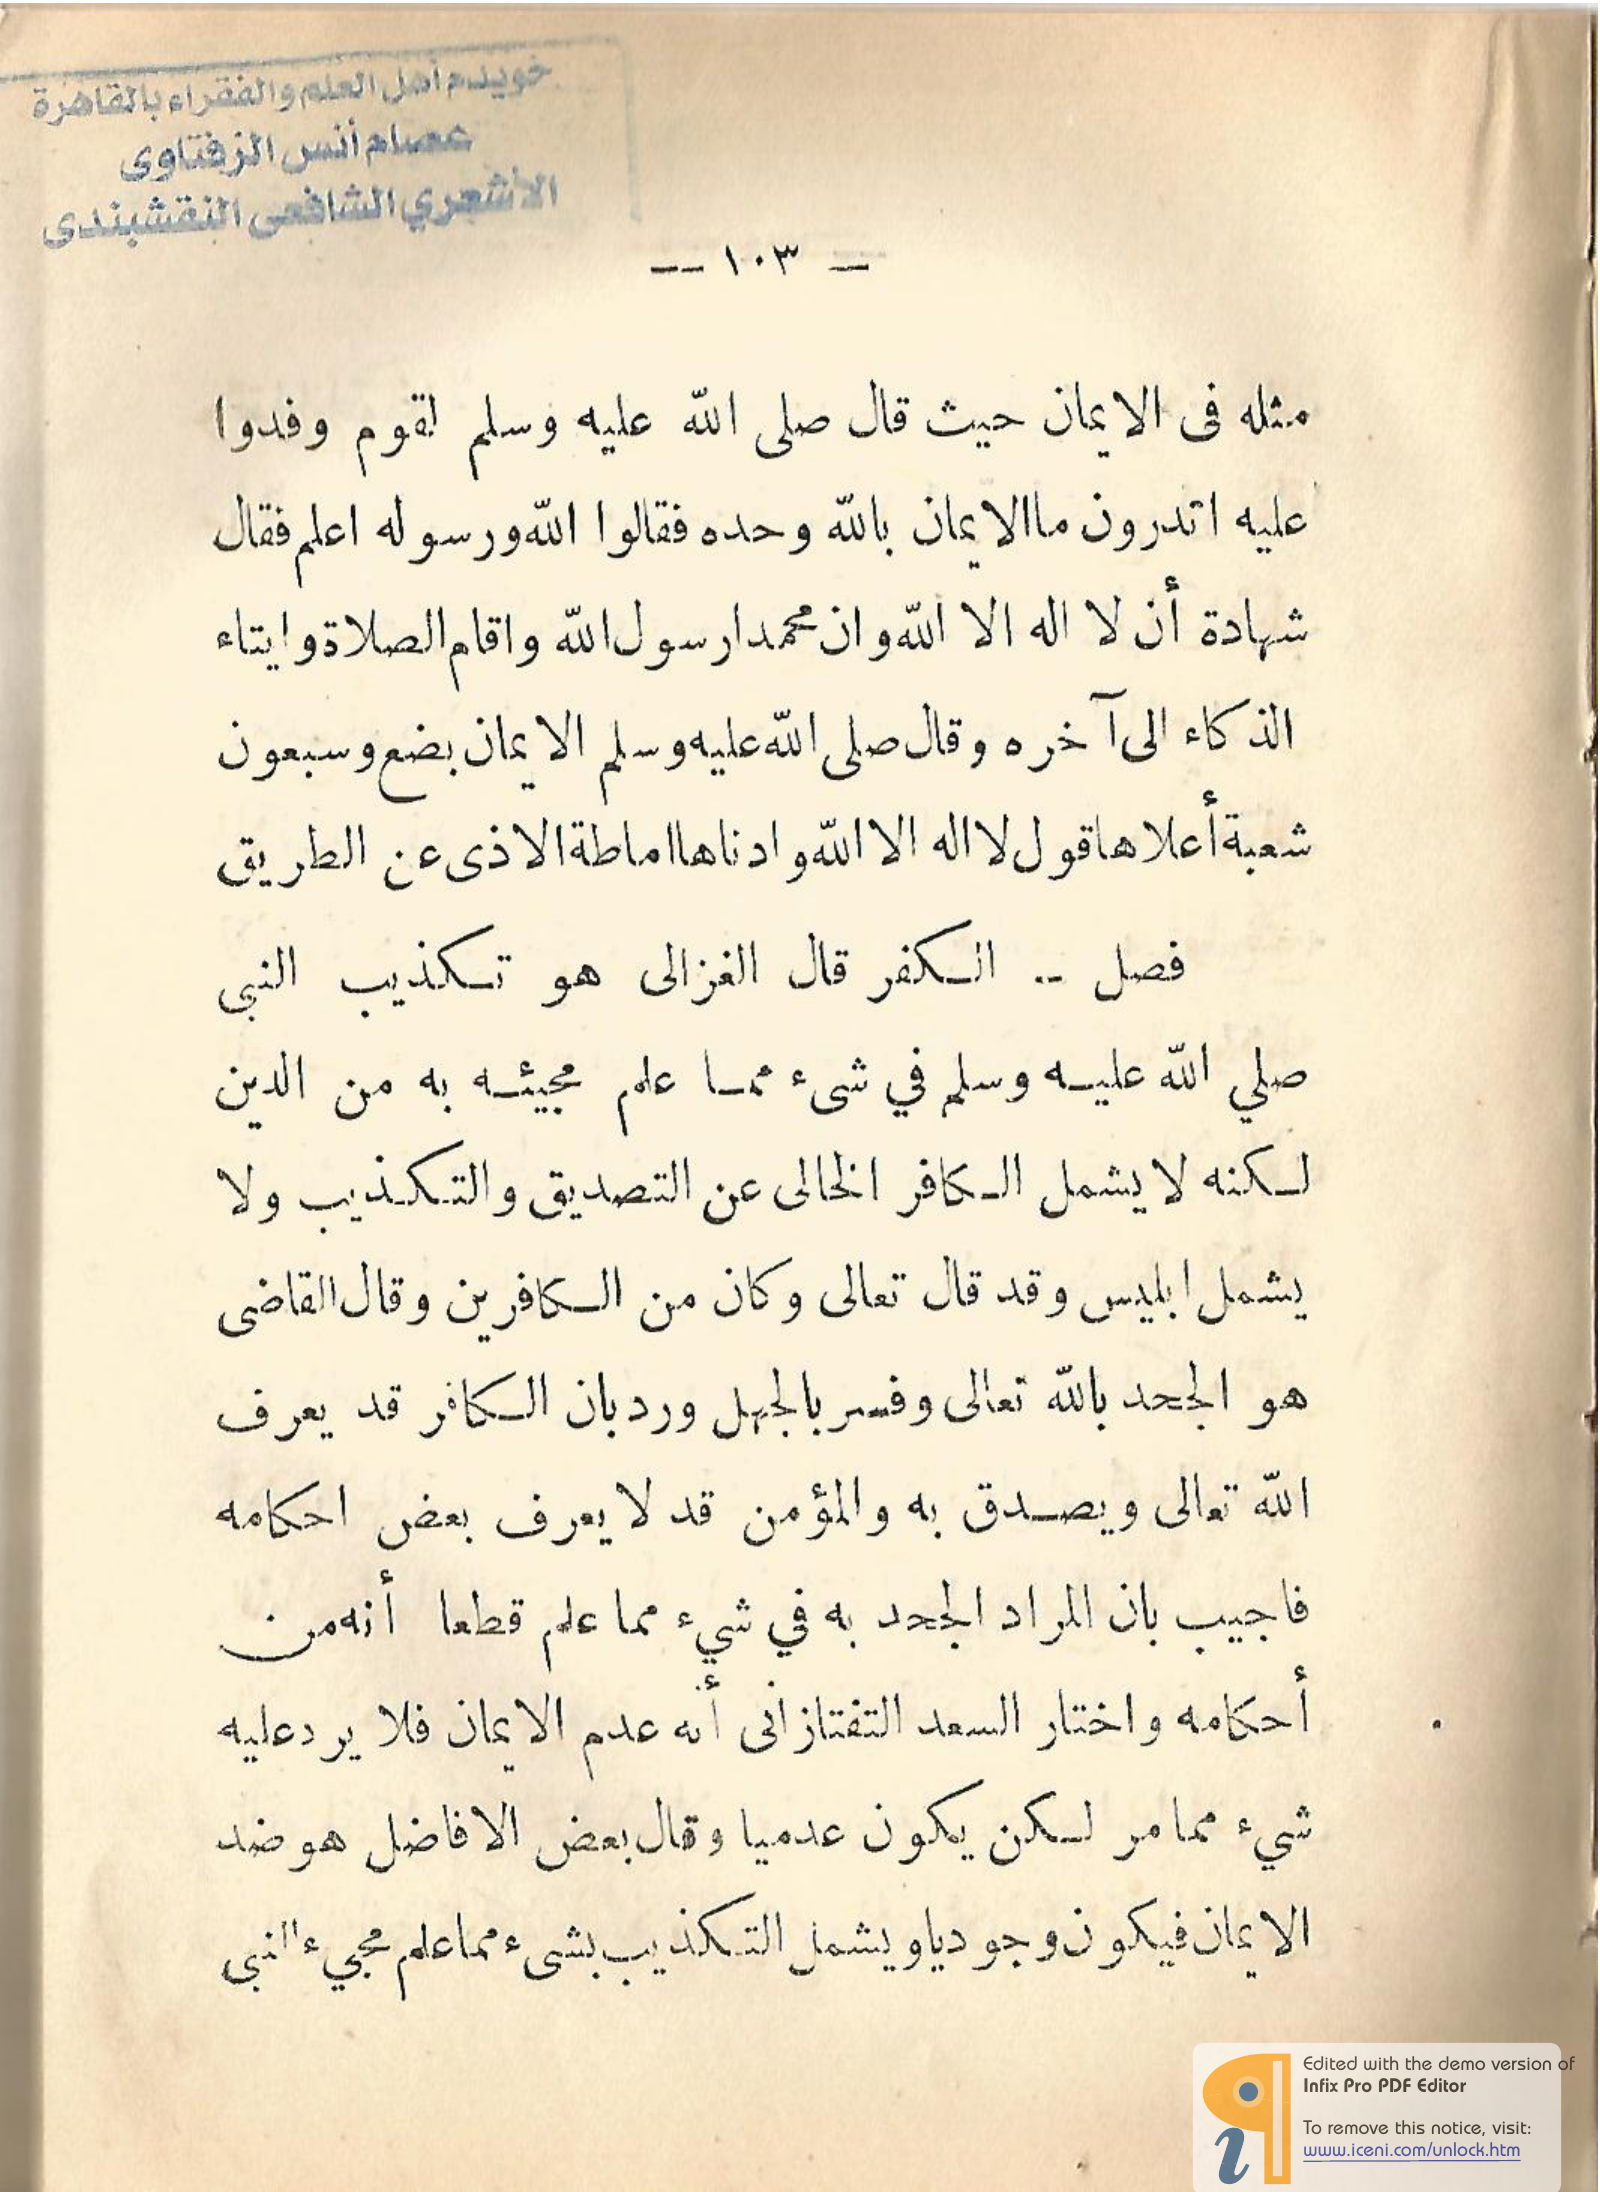 خويدم أهل العلم والفقراء بالقاهرة
عصام أنس الزفتاوى
الأشعري الشافعى النقشبندى
— ١٠٣ —
مثله فى الايمان حيث قال صلى الله عليه وسلم لقوم وفدوا
عليه اتدرون ماالايمان بالله وحده فقالوا الله ورسوله اعلم فقال
شهادة أن لا اله الا الله وان محمدا رسول الله واقام الصلاة وايتاء
الذكاء الى آخره وقال صلى الله عليه وسلم الايمان بضع وسبعون
شعبة أعلاها قول لااله الا الله وادناها اماطة الاذى عن الطريق
فصل -- الكفر قال الغزالى هو تكذيب النبى
صلي الله عليه وسلم في شىء مما علم مجيئه به من الدين
لكنه لا يشمل الكافر الخالى عن التصديق والتكذيب ولا
يشمل ابليس وقد قال تعالى وكان من الكافرين وقال القاضى
هو الجحد بالله تعالى وفسر بالجهل ورد بان الكافر قد يعرف
الله تعالى ويصدق به والمؤمن قد لا يعرف بعض احكامه
فاجيب بان المراد الجحد به في شيء مما علم قطعا أنه من
أحكامه واختار السعد التفتازانى أنه عدم الايمان فلا يرد عليه
شيء مما مر لكن يكون عدميا وقال بعض الافاضل هو ضد
الايمان فيكون وجوديا ويشمل التكذيب بشىء مما علم مجيء النبى
Edited with the demo version of
Infix Pro PDF Editor
To remove this notice, visit:
www.iceni.com/unlock.htm